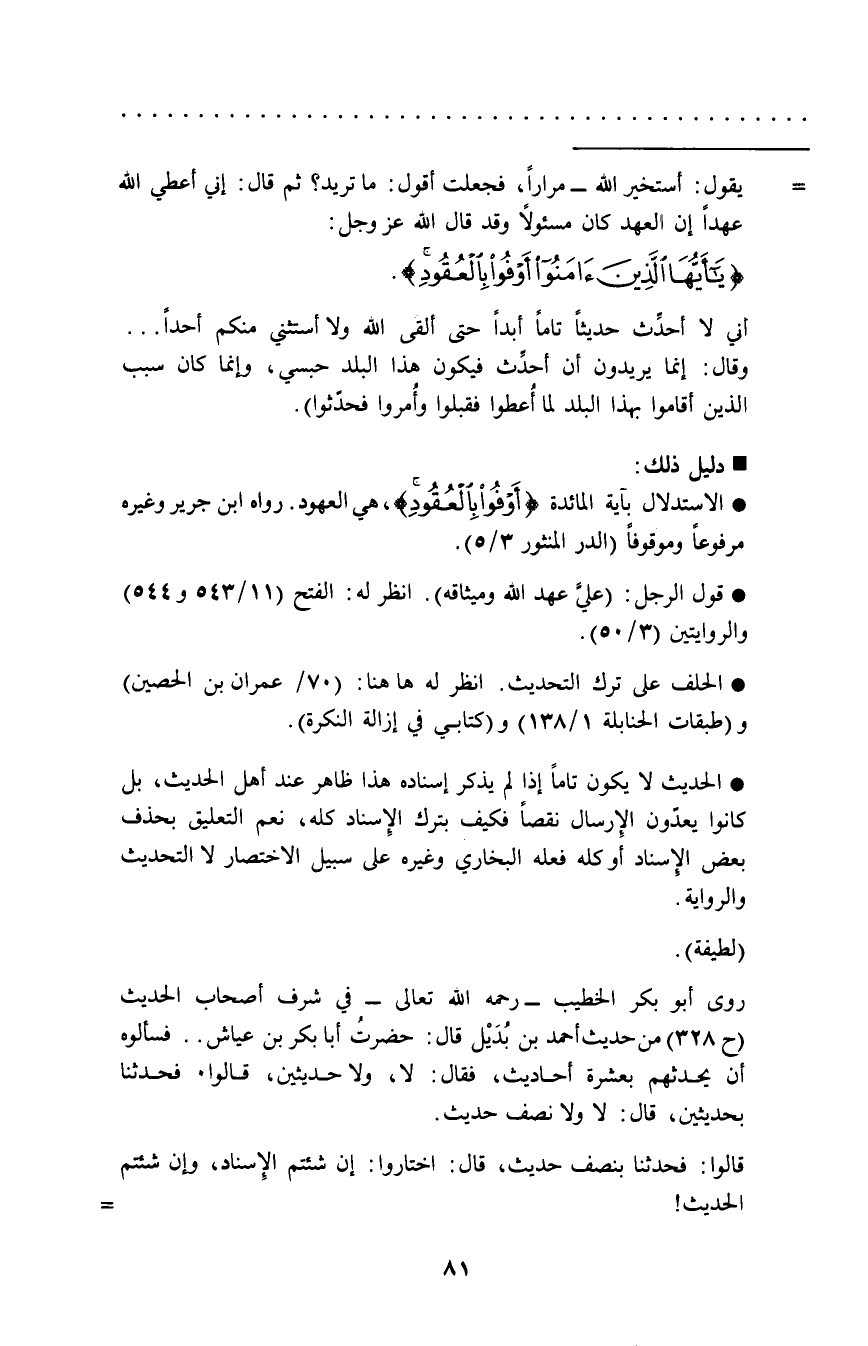 . . . . . . . . . . . . . . . . . . . . . . . . . . . . . . . . . . . . . . . . . . . . . .
= يقول: أستخير الله ــ مراراً، فجعلت أقول: ما تريد؟ ثم قال: إني أعطي الله
عهداً إن العهد كان مسئولًا وقد قال الله عز وجل:
﴿يَٰٓأَيُّهَا ٱلَّذِينَ ءَامَنُوٓا۟ أَوْفُوا۟ بِٱلْعُقُودِ ۚ﴾.
أني لا أحدِّث حديثاً تاماً أبداً حتى ألقى الله ولا أستثني منكم أحداً...
وقال: إنما يريدون أن أحدِّث فيكون هذا البلد حبسي، وإنما كان سبب
الذين أقاموا بهذا البلد لما أُعطوا فقبلوا وأُمروا فحدّثوا).
■ دليل ذلك:
● الاستدلال بآية المائدة ﴿أَوْفُوا۟ بِٱلْعُقُودِ ۚ﴾، هي العهود. رواه ابن جرير وغيره
مرفوعاً وموقوفاً (الدر المنثور ٥/٣).
● قول الرجل: (عليَّ عهد الله وميثاقه). انظر له: الفتح (٥٤٣/١١ و ٥٤٤)
والروايتين (٥٠/٣).
● الحلف على ترك التحديث. انظر له ها هنا: (٧٠/ عمران بن الحصين)
و (طبقات الحنابلة ١٣٨/١) و (كتابي في إزالة النكرة).
● الحديث لا يكون تاماً إذا لم يذكر إسناده هذا ظاهر عند أهل الحديث، بل
كانوا يعدّون الإِرسال نقصاً فكيف بترك الإِسناد كله، نعم التعليق بحذف
بعض الإِسناد أو كله فعله البخاري وغيره على سبيل الاختصار لا التحديث
والرواية.
(لطيفة).
روى أبو بكر الخطيب ــ رحمه الله تعالى ــ في شرف أصحاب الحديث
(ح ٣٢٨) من حديث أحمد بن بُدَيْل قال: حضرتُ أبا بكر بن عياش.. فسألوه
أن يحدثهم بعشرة أحاديث، فقال: لا، ولا حديثين، قالوا٠ فحدثنا
بحديثين، قال: لا ولا نصف حديث.
قالوا: فحدثنا بنصف حديث، قال: اختاروا: إن شئتم الإِسناد، وإن شئتم
الحديث! =
٨١